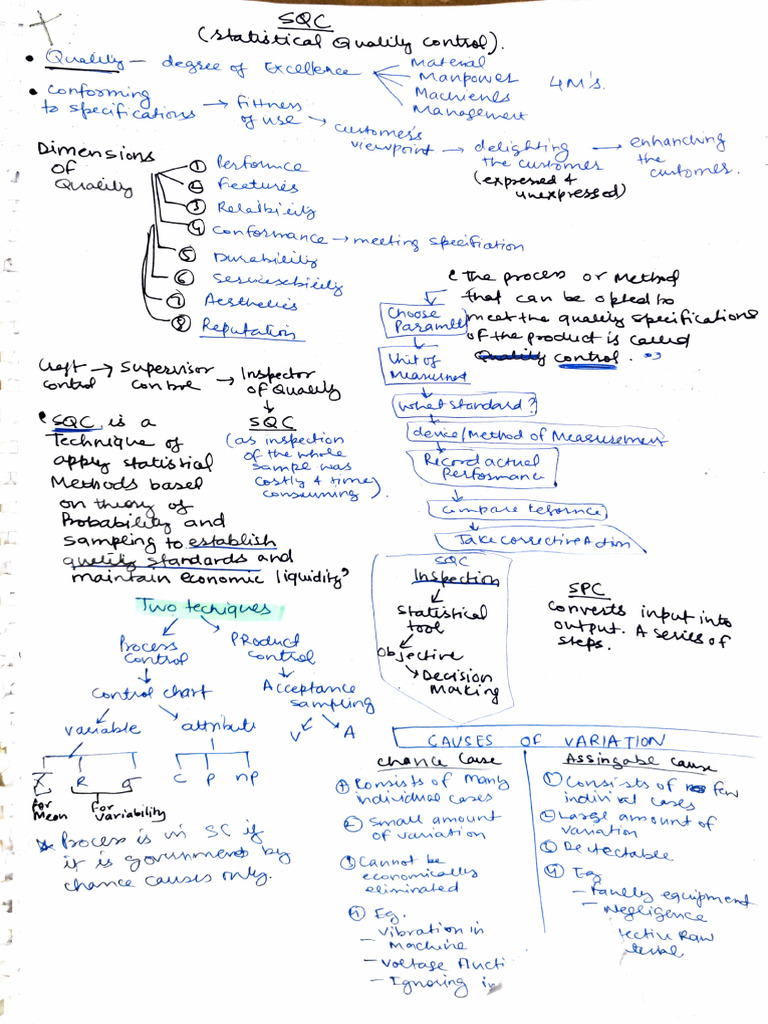 SQC
(Statistical Quality Control).
• Quality – degree of Excellence
Material
Manpower
Machienes
Management
4M's.
• Conforming to specifications → fittness of use → customer's viewpoint → delighting the customer (expressed & unexpressed) → enhanching the customer.
Dimensions
of
Quality
① Performce
② Features
③ Relaibility
④ Conformance → meeting specifiation
⑤ Durability
⑥ Servicebility
⑦ Aesthetics
⑧ Reputation
"The process or Method
that can be opted to
meet the quality specifications
of the product is called
Quality control."
Choose
Paramter
Unit of
Measurment
What Standard?
device/Method of Measurement
Record actual
Performance
compare
Take corrective Action
Craft control → Supervisor control → Inspector of Quality
SQC
(as inspection
of the whole
sample was
costly & time
consuming).
"SQC is a
Technique of
apply statistical
Methods based
on theory of
Probability and
sampling to establish
quality standards and
maintain economic liquidity"
SQC
Inspection
Statistical
tool
Objective
Decision
Making
SPC
Converts input into
output. A series of
steps.
Two techiques
Process
control
PRoduct
control
Control chart
Acceptance
sampling
variable
attribute
V
A
X̄ R σ
C P np
for
Mean
for
variability
* Process is in SC if
it is governmend by
chance causes only.
CAUSES OF VARIATION
Chance Cause
① Consists of Many
individual cases
② Small amount
of variation
③ Cannot be
economically
eliminated
④ Eg.
– Vibration in
Machine
– Voltage flucti
– Ignoring in
Assingable cause
① Consists of few
individal cases
② Large amount of
variation
③ Dectectable
④ Eg
– Faulty equipment
– Negligence
ective Raw
terial